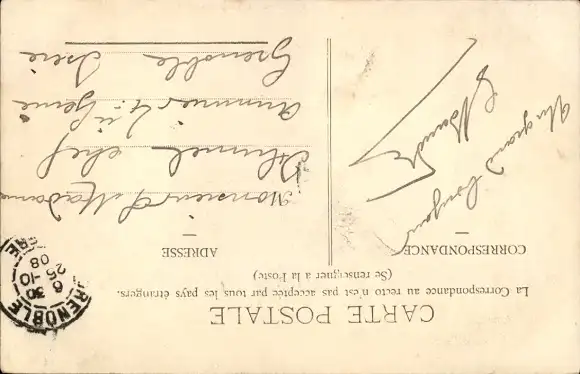 CARTE POSTALE
La Correspondance au recto n'est pas acceptée par tous les pays étrangers.
(Se renseigner à la Poste)
CORRESPONDANCE
Un grand bonjour
ADRESSE
Monsieur & Madame
chef
4e Génie
Grenoble Isère
GRENOBLE
6 30
25 -10
08
ISÈRE